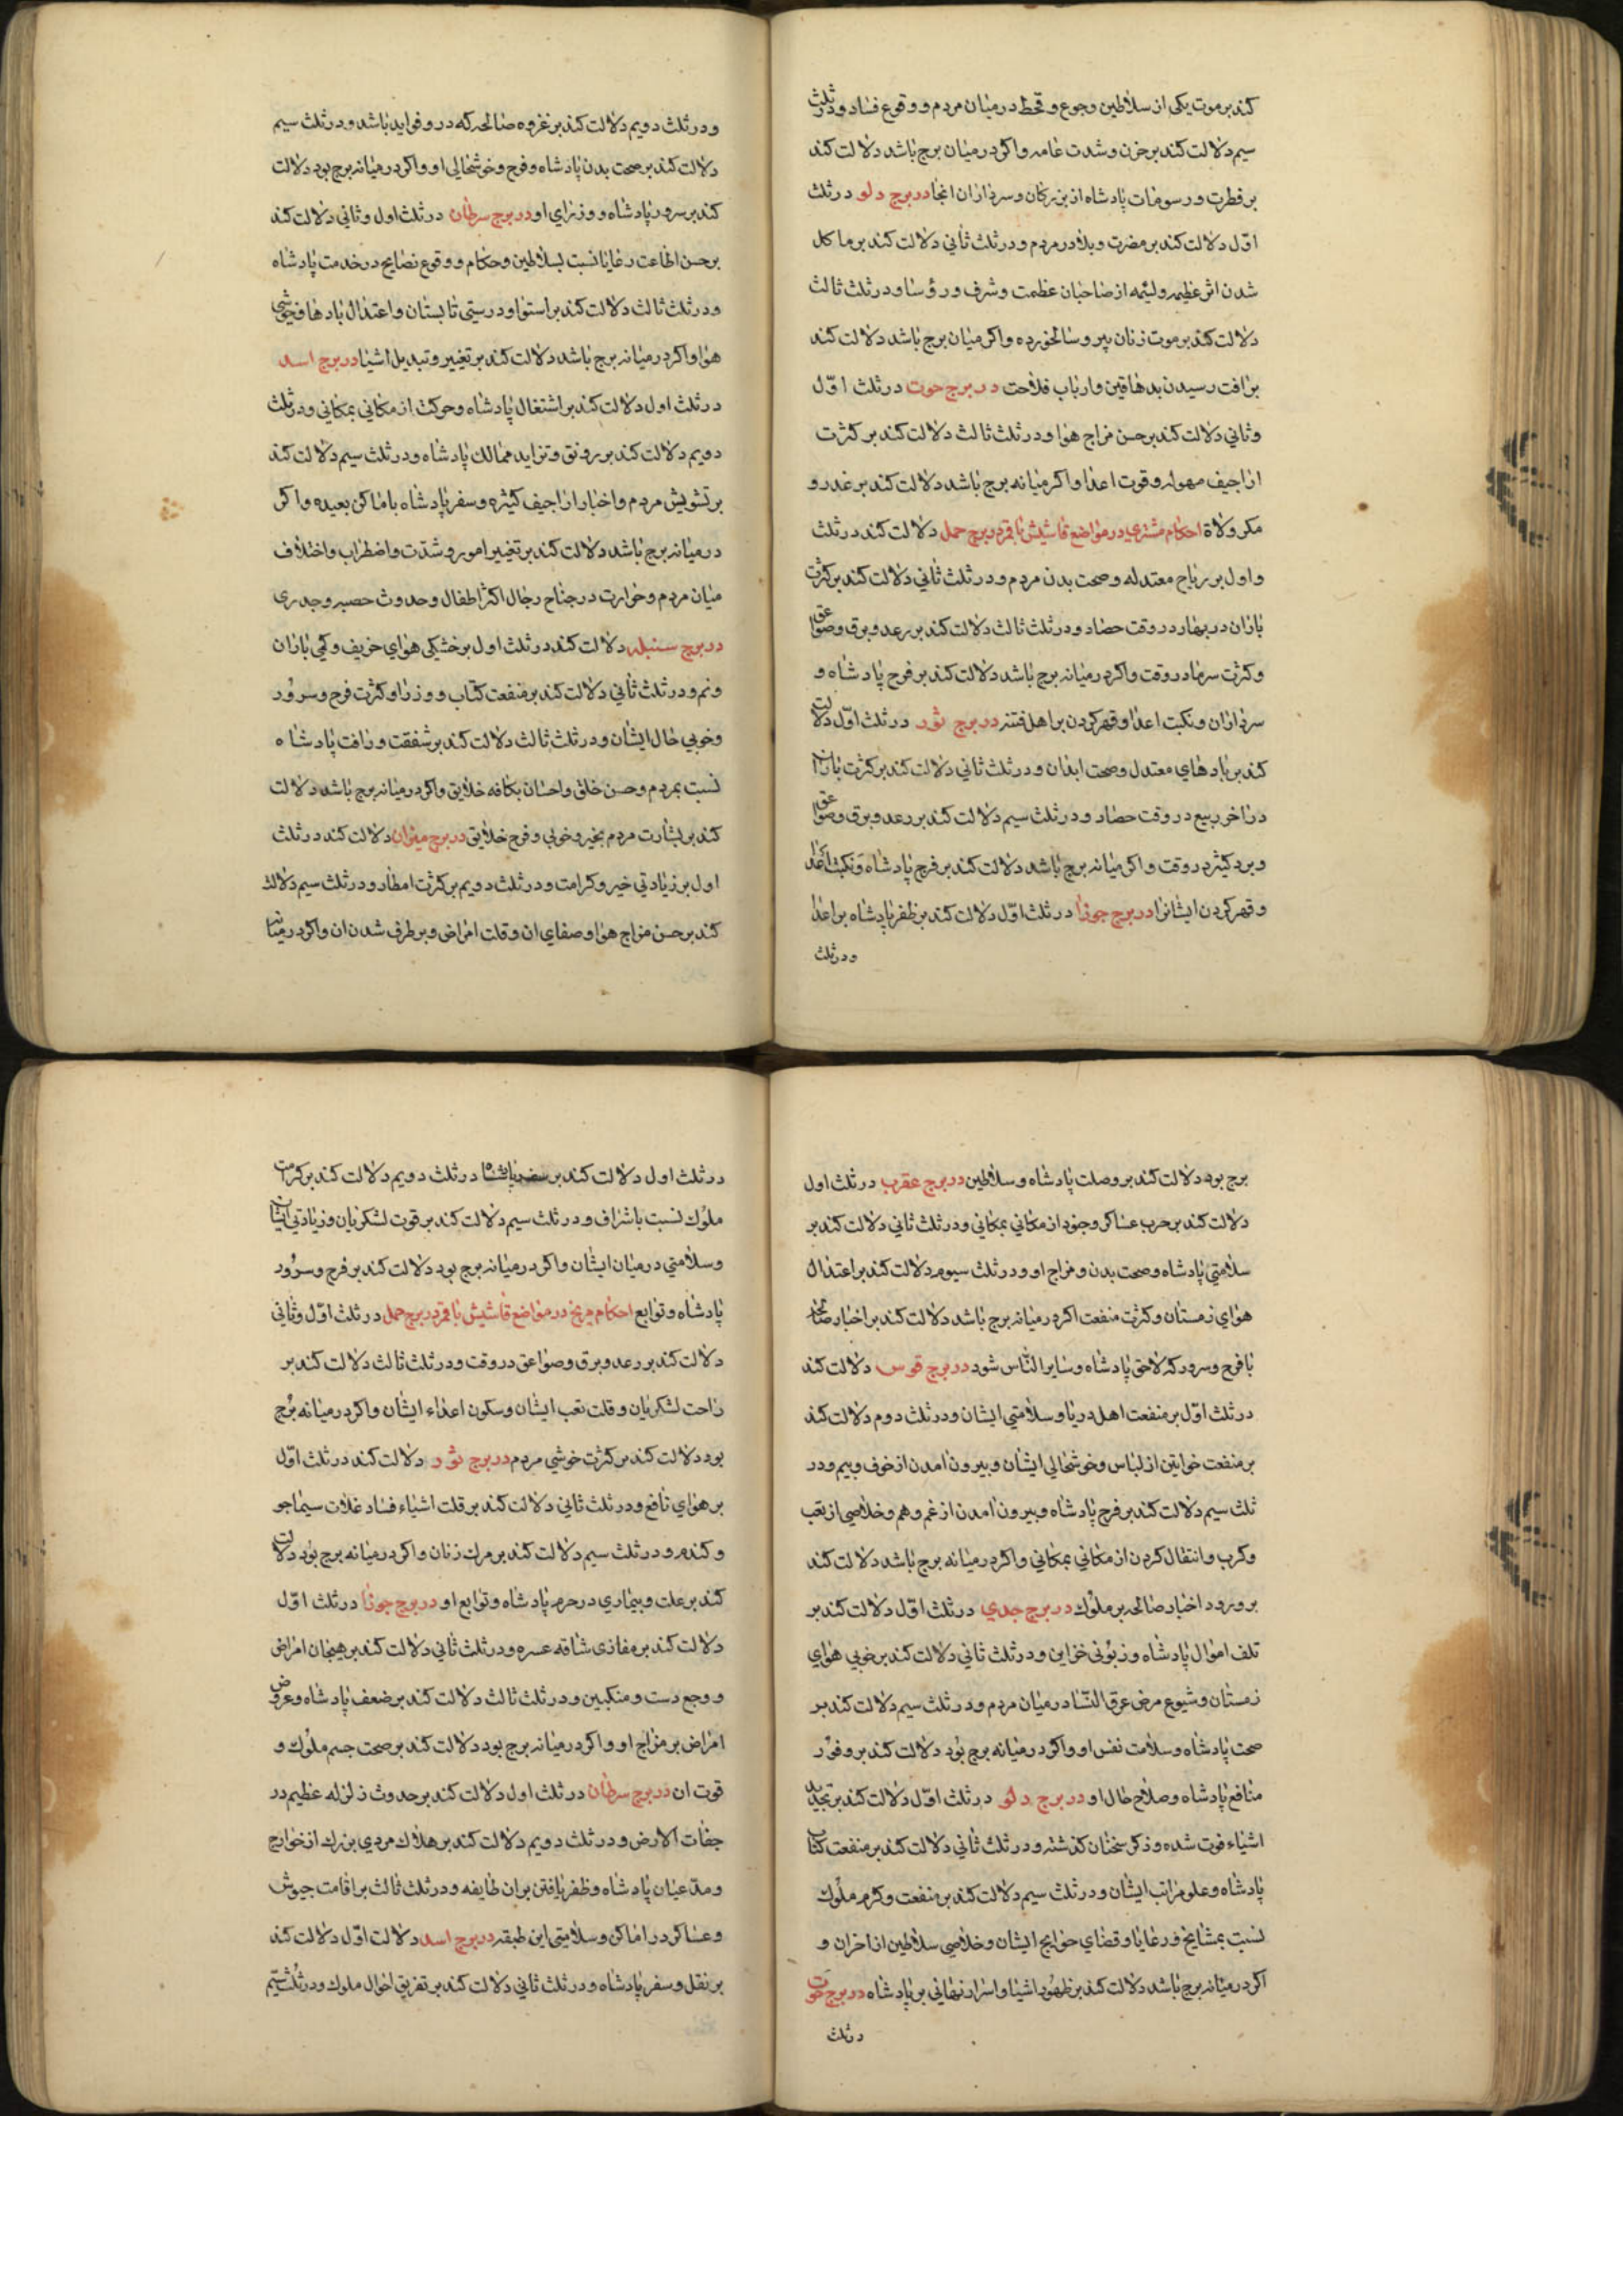 کند بر موت یکی از سلاطین و جوع و قحط در میان مردم و وقوع فساد و در ثلث
سیم دلالت کند بر حزن و شدت عامه و اکر در میان برج باشد دلالت کند
بر فطرت و رسومات پادشاه از بزرکان و سرداران انجا در برج دلو در ثلث
اوّل دلالت کند بر مضرت و بلا در مردم و در ثلث ثانی دلالت کند بر ماکل
شدن اثر عظیمه ولیمه از صاحبان عظمت و شرف و رؤسا و در ثلث ثالث
دلالت کند بر موت زنان پیر و سالخورده و اکر میان برج باشد دلالت کند
بر افت رسیدن بدهاقین و ارباب فلاحت در برج حوت در ثلث اوّل
و ثانی دلالت کند بر حسن مزاج هوا و در ثلث ثالث دلالت کند بر کثرت
اراجیف مهوله و قوت اعدا و اکر میانه برج باشد دلالت کند بر غدر و
مکر ولاة احکام مشتری در مواضع قاشیش با قمر در برج حمل دلالت کند در ثلث
و اول بر ریاح معتدله و صحت بدن مردم و در ثلث ثانی دلالت کند بر کثرت
باران در بهار در وقت حصاد و در ثلث ثالث دلالت کند بر رعد و برق و صواعق
و کثرت سرما در وقت و اکر در میانه برج باشد دلالت کند بر فرح پادشاه و
سرداران و نکبت اعدا و قهر کردن بر اهل فتنه در برج ثور در ثلث اوّل دلالت
کند بر بادهای معتدل و صحت ابدان و در ثلث ثانی دلالت کند بر کثرت باران
در اخر ربیع در وقت حصاد و در ثلث سیم دلالت کند بر رعد و برق و صواعق
و برد کثیر در وقت و اکر میانه برج باشد دلالت کند بر فرح پادشاه و نکبت اعدا
و قهر کردن ایشانرا در برج جوزا در ثلث اوّل دلالت کند بر ظفر پادشاه بر اعدا
و در ثلث
و در ثلث دویم دلالت کند بر غزوه صالحه که در و فواید باشد و در ثلث سیم
دلالت کند بر صحت بدن پادشاه و فرح و خوشحالی او و اکر در میانه برج بود دلالت
کند بر سرور پادشاه و وزرای او در برج سرطان در ثلث اول و ثانی دلالت کند
بر حسن اطاعت رعایا نسبت بسلاطین و حکام و وقوع نصایح در خدمت پادشاه
و در ثلث ثالث دلالت کند بر استوا و درستی تابستان و اعتدال بادها و خوشی
هوا و اکر در میانه برج باشد دلالت کند بر تغییر و تبدیل اشیا در برج اسد
در ثلث اول دلالت کند بر اشتغال پادشاه و حرکت از مکانی بمکانی و در ثلث
دویم دلالت کند بر رونق و تزاید ممالک پادشاه و در ثلث سیم دلالت کند
بر تشویش مردم و اخبار اراجیف کثیره و سفر پادشاه باماکن بعیده و اکر
در میانه برج باشد دلالت کند بر تغییر امور و شدّت و اضطراب و اختلاف
میان مردم و حرارت در جناح رجال اکثر اطفال و حدوث حصبه و جدری
در برج سنبله دلالت کند در ثلث اول بر خشکی هوای خریف و کمی باران
و نم و در ثلث ثانی دلالت کند بر منفعت کتاب و وزرا و کثرت فرح و سرور
و خوبی حال ایشان و در ثلث ثالث دلالت کند بر شفقت و رافت پادشاه
نسبت بمردم و حسن خلق و احسان بکافه خلایق و اکر در میانه برج باشد دلالت
کند بر بشارت مردم بخیر و خوبی و فرح خلایق در برج میزان دلالت کند در ثلث
اول بر زیادتی خیر و کرامت و در ثلث دویم بر کثرت امطار و در ثلث سیم دلالت
کند بر حسن مزاج هوا و صفای ان و قلت امراض و بر طرف شدن ان و اکر در میانه
برج بود دلالت کند بر وصلت پادشاه و سلاطین در برج عقرب در ثلث اول
دلالت کند بر حرب عساکر و جنود از مکانی بمکانی و در ثلث ثانی دلالت کند بر
سلامتی پادشاه و صحت بدن و مزاج او و در ثلث سیوم دلالت کند بر اعتدال
هوای زمستان و کثرت منفعت اکر در میانه برج باشد دلالت کند بر اخبار صالحه
با فرح و سرور که لاحق پادشاه و سایر الناس شود در برج قوس دلالت کند
در ثلث اوّل بر منفعت اهل دریا و سلامتی ایشان و در ثلث دوم دلالت کند
بر منفعت خواتین از لباس و خوشحالی ایشان و بیرون امدن از خوف و بیم و در
ثلث سیم دلالت کند بر فرح پادشاه و بیرون امدن از غم و هم و خلاصی از تعب
و کرب و انتقال کردن از مکانی بمکانی و اکر در میانه برج باشد دلالت کند
بر ورود اخبار صالحه بر ملوک در برج جدی در ثلث اوّل دلالت کند بر
تلف اموال پادشاه و زبونی خزاین و در ثلث ثانی دلالت کند بر خوبی هوای
زمستان و شیوع مرض عرق النّسا در میان مردم و در ثلث سیم دلالت کند بر
صحت پادشاه و سلامت نفس او و اکر در میانه برج بود دلالت کند بر وفور
منافع پادشاه و صلاح حال او در برج دلو در ثلث اوّل دلالت کند بر تجدید
اشیاء فوت شده و ذکر سخنان کذشته و در ثلث ثانی دلالت کند بر منفعت کتاب
پادشاه و علو مراتب ایشان و در ثلث سیم دلالت کند بر منفعت و کرم ملوک
نسبت بمشایخ و رعایا و قضای حوایج ایشان و خلاصی سلاطین از احزان و
اکر در میانه برج باشد دلالت کند بر ظهور اشیا و اسرار نهانی بر پادشاه در برج حوت
در ثلث
در ثلث اول دلالت کند بر سفر پادشاه در ثلث دویم دلالت کند بر کرامت
ملوک نسبت باشراف و در ثلث سیم دلالت کند بر قوت لشکریان و زیادتی ایشان
و سلامتی در میان ایشان و اکر در میانه برج بود دلالت کند بر فرح و سرور
پادشاه و توابع احکام مریخ در مواضع قاشیش با قمر در برج حمل در ثلث اوّل و ثانی
دلالت کند بر رعد و برق و صواعق در وقت و در ثلث ثالث دلالت کند بر
راحت لشکریان و قلت تعب ایشان و سکون اعداء ایشان و اکر در میانه برج
بود دلالت کند بر کثرت خوشی مردم در برج ثور دلالت کند در ثلث اوّل
بر هوای نافع و در ثلث ثانی دلالت کند بر قلت اشیاء فساد غلات سیما جو
و کندم و در ثلث سیم دلالت کند بر مرک زنان و اکر در میانه برج بود دلالت
کند بر علت و بیماری در حرم پادشاه و توابع او در برج جوزا در ثلث اوّل
دلالت کند بر مغازی شاقه عسره و در ثلث ثانی دلالت کند بر هیجان امراض
و وجع دست و منکبین و در ثلث ثالث دلالت کند بر ضعف پادشاه و عروض
امراض بر مزاج او و اکر در میانه برج بود دلالت کند بر صحت جسم ملوک و
قوت ان در برج سرطان در ثلث اول دلالت کند بر حدوث زلزله عظیم در
جفات الارض و در ثلث دویم دلالت کند بر هلاک مردی بزرک از خوارج
و مدّعیان پادشاه و ظفر یافتن بران طایفه و در ثلث ثالث بر اقامت جیوش
و عساکر در اماکن و سلامتی این طبقه در برج اسد دلالت اوّل دلالت کند
بر نقل و سفر پادشاه و در ثلث ثانی دلالت کند بر تفریق احوال ملوک و در ثلث سیّم